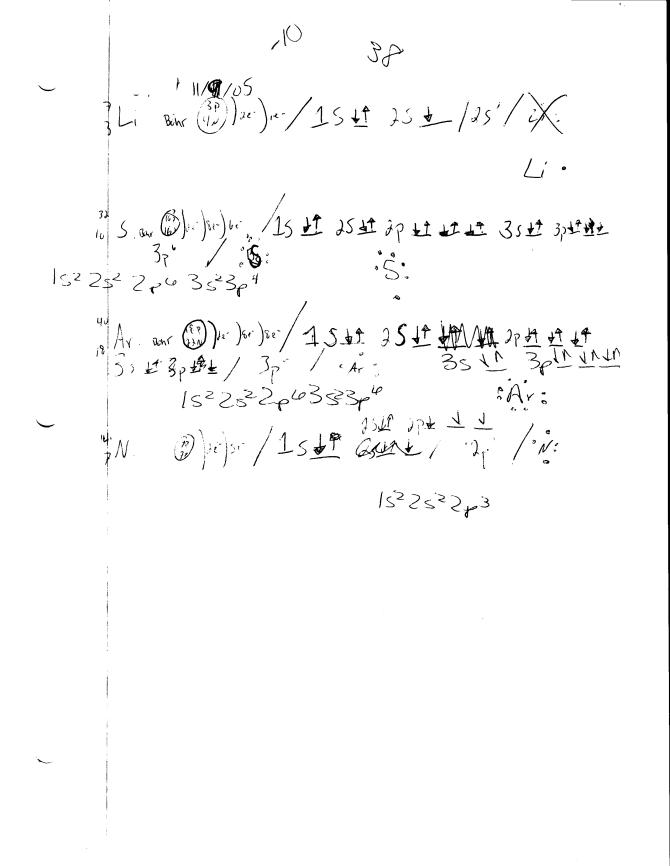 .10 38
11/9/05
7
3 Li Bohr 3p 4N )2e⁻)1e⁻ / 1s ↓↑ 2s ↓ / 2s¹ /
Li •
32
16 S Bohr )8e⁻)6e⁻ / 1s ↓↑ 2s ↓↑ 2p ↓↑ ↓↑ ↓↑ 3s ↓↑ 3p
3p⁴ S S
1s² 2s² 2p⁶ 3s² 3p⁴
40
18 Ar Bohr )2e⁻)8e⁻)8e⁻ / 1s ↓↑ 2s ↓↑ 2p ↓↑ ↓↑ ↓↑
3s ↓↑ 3p / 3p / Ar 3s ↓↑ 3p ↓↑ ↓↑ ↓↑
1s² 2s² 2p⁶ 3s² 3p⁶ Ar
2s ↓↑ 2p ↓ ↓ ↓
7 N )2e⁻)5e⁻ / 1s ↓↑ / 2p / N
1s² 2s² 2p³